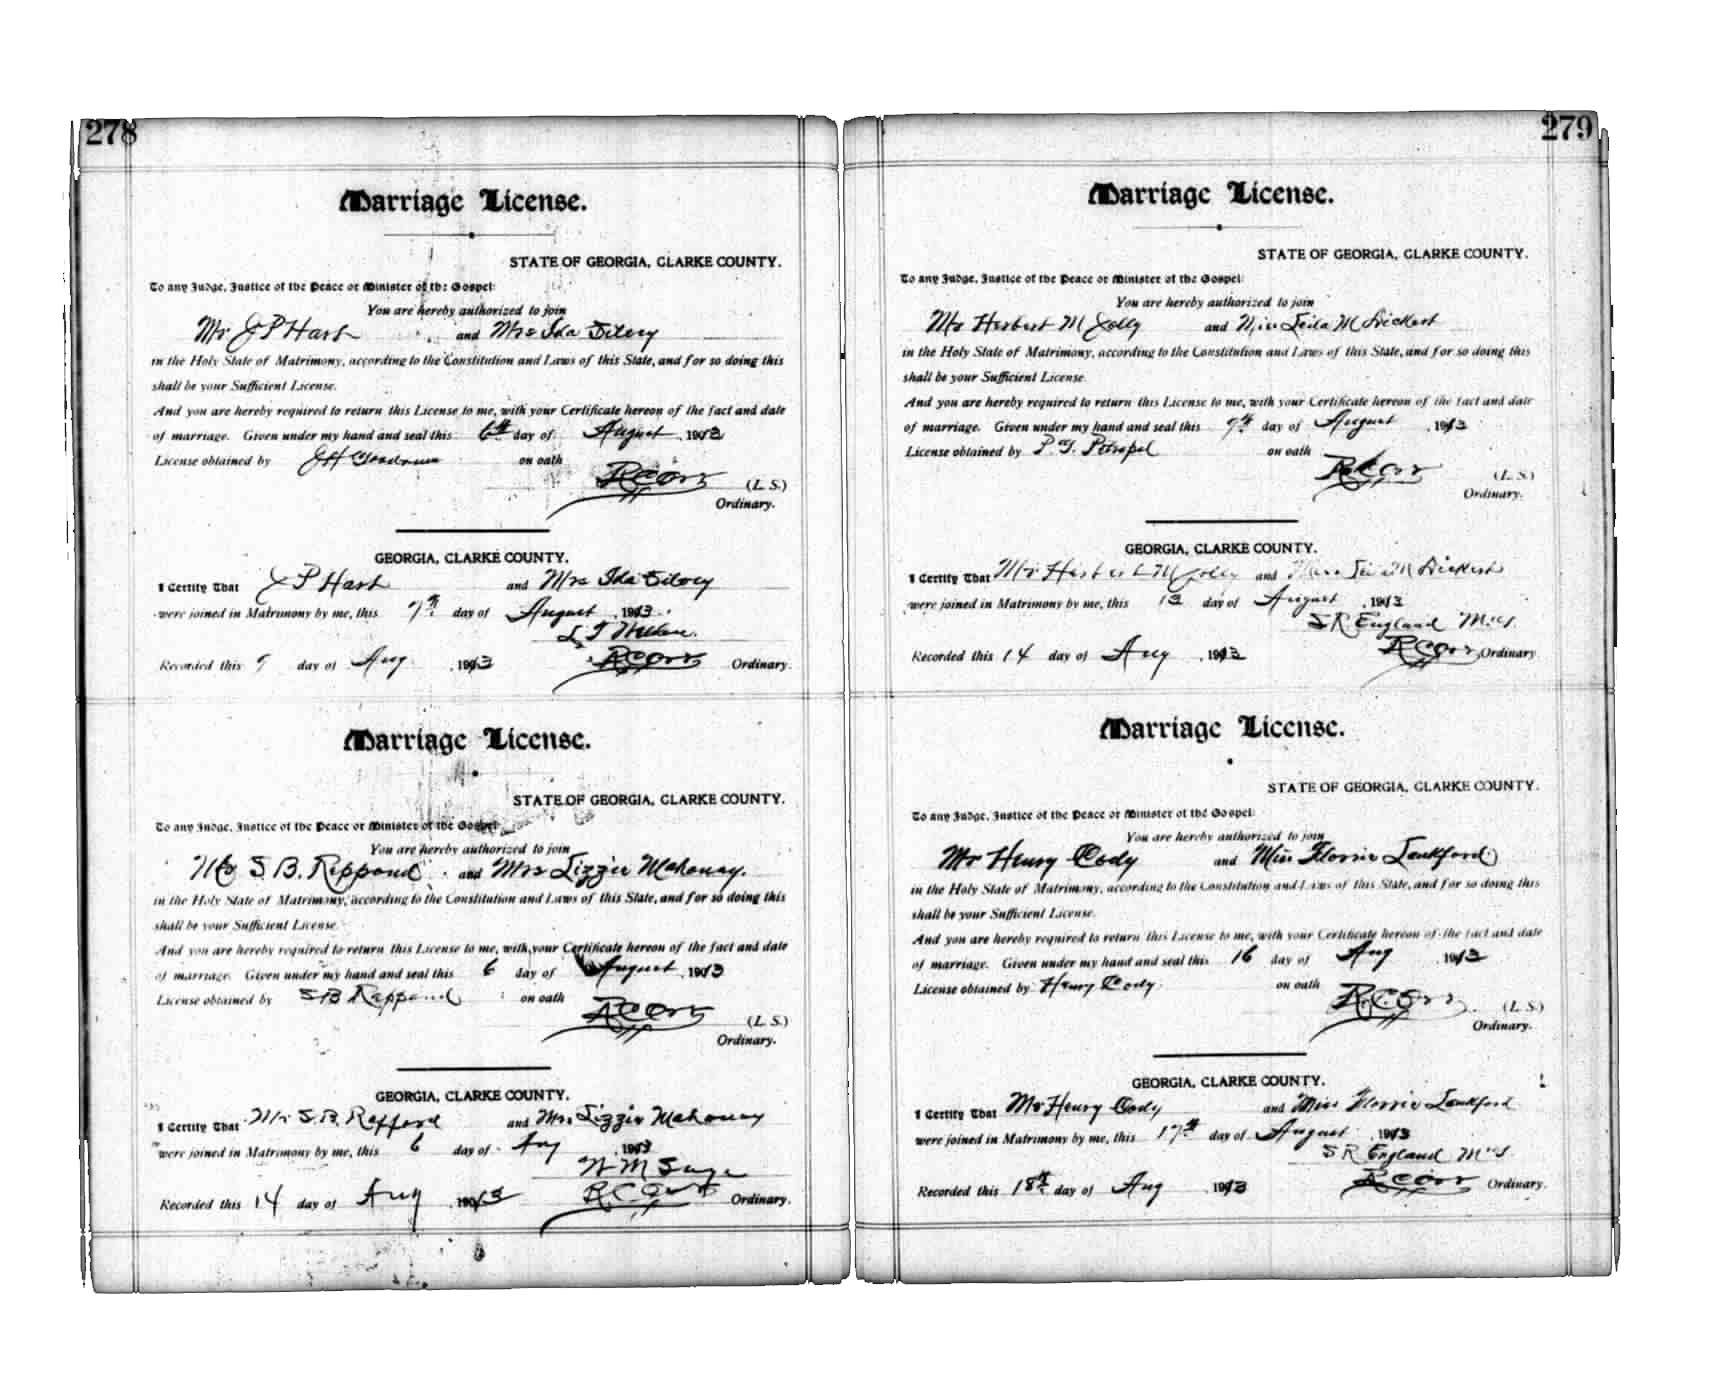 278
Marriage License.
STATE OF GEORGIA, CLARKE COUNTY.
To any Judge, Justice of the Peace or Minister of the Gospel:
You are hereby authorized to join
Mr J P Hart and Mrs Ida
in the Holy State of Matrimony, according to the Constitution and Laws of this State, and for so doing this
shall be your Sufficient License.
And you are hereby required to return this License to me, with your Certificate hereon of the fact and date
of marriage. Given under my hand and seal this 6th day of August, 1913
License obtained by J H on oath
R C Orr (L. S.)
Ordinary.
GEORGIA, CLARKE COUNTY.
I Certify That J P Hart and Mrs Ida
were joined in Matrimony by me, this 7th day of August, 1913.
Recorded this 9 day of Aug, 1913 R C Orr Ordinary.
Marriage License.
STATE OF GEORGIA, CLARKE COUNTY.
To any Judge, Justice of the Peace or Minister of the Gospel:
You are hereby authorized to join
Mr S. B. Reppond and Mrs Lizzie Mahoney.
in the Holy State of Matrimony, according to the Constitution and Laws of this State, and for so doing this
shall be your Sufficient License.
And you are hereby required to return this License to me, with your Certificate hereon of the fact and date
of marriage. Given under my hand and seal this 6 day of August, 1913
License obtained by S B Reppond on oath
R C Orr (L. S.)
Ordinary.
GEORGIA, CLARKE COUNTY.
I Certify That Mr S. B. and Mrs. Lizzie Mahoney
were joined in Matrimony by me, this 6 day of Aug, 1913
W M
Recorded this 14 day of Aug, 1913 R C Orr Ordinary.
279
Marriage License.
STATE OF GEORGIA, CLARKE COUNTY.
To any Judge, Justice of the Peace or Minister of the Gospel:
You are hereby authorized to join
Mr Herbert M Jolly and Miss Leila M Dickert
in the Holy State of Matrimony, according to the Constitution and Laws of this State, and for so doing this
shall be your Sufficient License.
And you are hereby required to return this License to me, with your Certificate hereon of the fact and date
of marriage. Given under my hand and seal this 9th day of August, 1913
License obtained by on oath
R C Orr (L. S.)
Ordinary.
GEORGIA, CLARKE COUNTY.
I Certify That Mr Herbert M Jolly and Miss Leila M Dickert
were joined in Matrimony by me, this 13 day of August, 1913
S R England M.G.
Recorded this 14 day of Aug, 1913 R C Orr Ordinary
Marriage License.
STATE OF GEORGIA, CLARKE COUNTY.
To any Judge, Justice of the Peace or Minister of the Gospel:
You are hereby authorized to join
Mr Henry Cody and Miss Florrie Lankford
in the Holy State of Matrimony, according to the Constitution and Laws of this State, and for so doing this
shall be your Sufficient License.
And you are hereby required to return this License to me, with your Certificate hereon of the fact and date
of marriage. Given under my hand and seal this 16 day of Aug 1913
License obtained by Henry Cody on oath
R. C. Orr (L. S.)
Ordinary.
GEORGIA, CLARKE COUNTY.
I Certify That Mr Henry Cody and Miss Florrie Lankford
were joined in Matrimony by me, this 17th day of August, 1913
S R England M.G.
Recorded this 18th day of Aug 1913 R C Orr Ordinary.